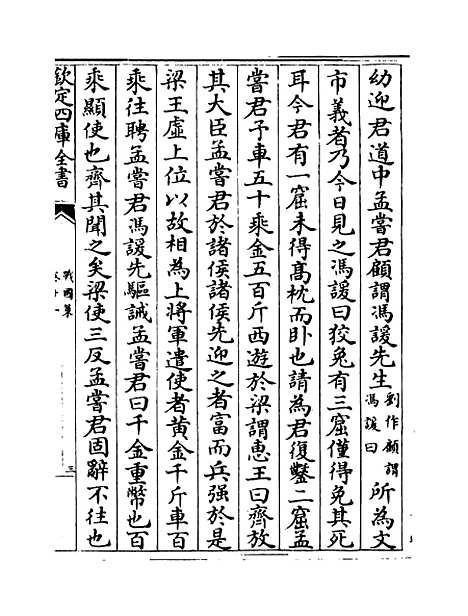 幼迎君道中孟嘗君顧謂馮諼先生劉作顧謂馮諼曰所為文
市義者乃今日見之馮諼曰狡兔有三窟僅得免其死
耳今君有一窟未得髙枕而卧也請為君復鑿二窟孟
嘗君予車五十乘金五百斤西遊於梁謂惠王曰齊放
其大臣孟嘗君於諸侯諸侯先迎之者富而兵強於是
梁王虛上位以故相為上將軍遣使者黄金千斤車百
乘往聘孟嘗君馮諼先驅誡孟嘗君曰千金重幣也百
乘顯使也齊其聞之矣梁使三反孟嘗君固辭不往也
欽定四庫全書
戰國策
卷十一
三